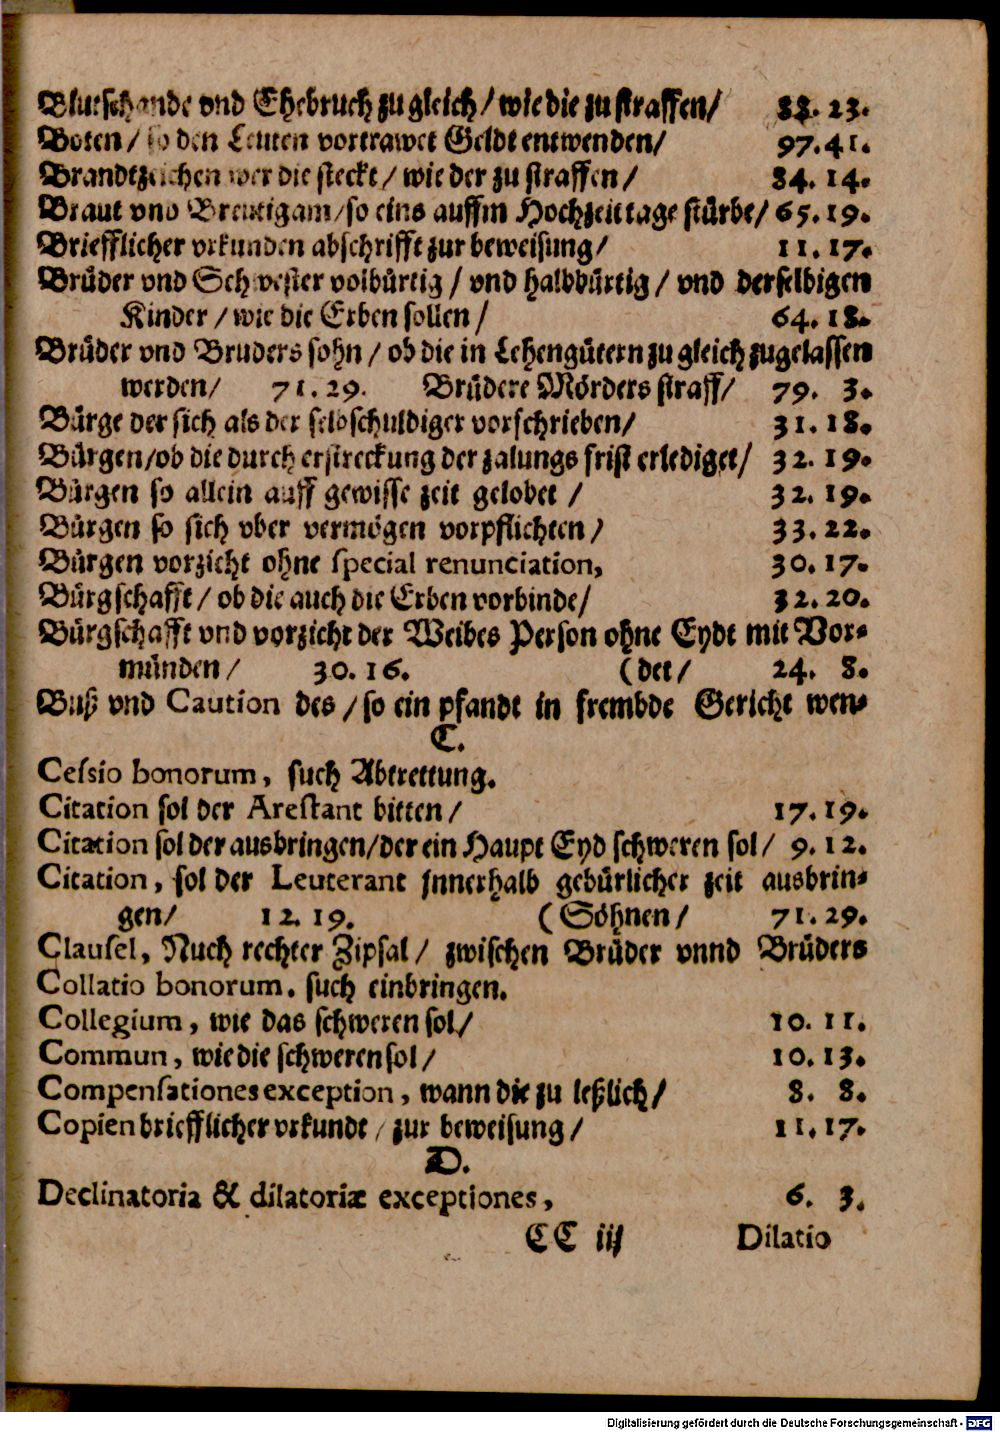 Blutschande vnd Ehebruch zu gleich / wie die zu straffen / 88. 23.
Boten / so den Leuten vortrawet Geldt entwenden / 97. 41.
Brandtzeichen wer die steckt / wie der zu straffen / 84. 14.
Braut vnd Breutigam / so eins auffm Hochzeit tage stürbe / 65. 19.
Briefflicher vrkunden abschrifft zur beweisung / 11. 17.
Brüder vnd Schwester volbürtig / vnd halbbürtig / vnd derselbigen
Kinder / wie die Erben sollen / 64. 18.
Brüder vnd Bruders sohn / ob die in Lehengütern zu gleich zugelassen
werden / 71. 29. Brüdere Mörders straff / 79. 3.
Bürge der sich als der selbschuldiger vorschrieben / 31. 18.
Bürgen / ob die durch erstreckung der zalungs frist erlediget / 32. 19.
Bürgen so allein auff gewisse zeit gelobet / 32. 19.
Bürgen so sich vber vermögen vorpflichten / 33. 22.
Bürgen vorzicht ohne special renunciation, 30. 17.
Bürgschafft / ob die auch die Erben vorbinde / 32. 20.
Bürgschafft vnd vorzicht der Weibes Person ohne Eydt mit Vor-
münden / 30. 16. (det / 24. 8.
Buß vnd Caution des / so ein pfandt in frembde Gericht wen-
C.
Cessio bonorum, such Abtrettung.
Citation sol der Arestant bitten / 17. 19.
Citation sol der ausbringen / der ein Haupt Eyd schweren sol / 9. 12.
Citation, sol der Leuterant jnnerhalb gebürlicher zeit ausbrin-
gen / 12. 19. (Söhnen / 71. 29.
Clausel, Nuch rechter Zipsal / zwischen Brüder vnnd Brüders
Collatio bonorum. such einbringen.
Collegium, wie das schweren sol / 10. 11.
Commun, wie die schweren sol / 10. 13.
Compensationes exception, wann die zu leßlich / 8. 8.
Copien briefflicher vrkunde / zur beweisung / 11. 17.
D.
Declinatoria & dilatoriæ exceptiones, 6. 3.
CC iij Dilatio
Digitalisierung gefördert durch die Deutsche Forschungsgemeinschaft - DFG